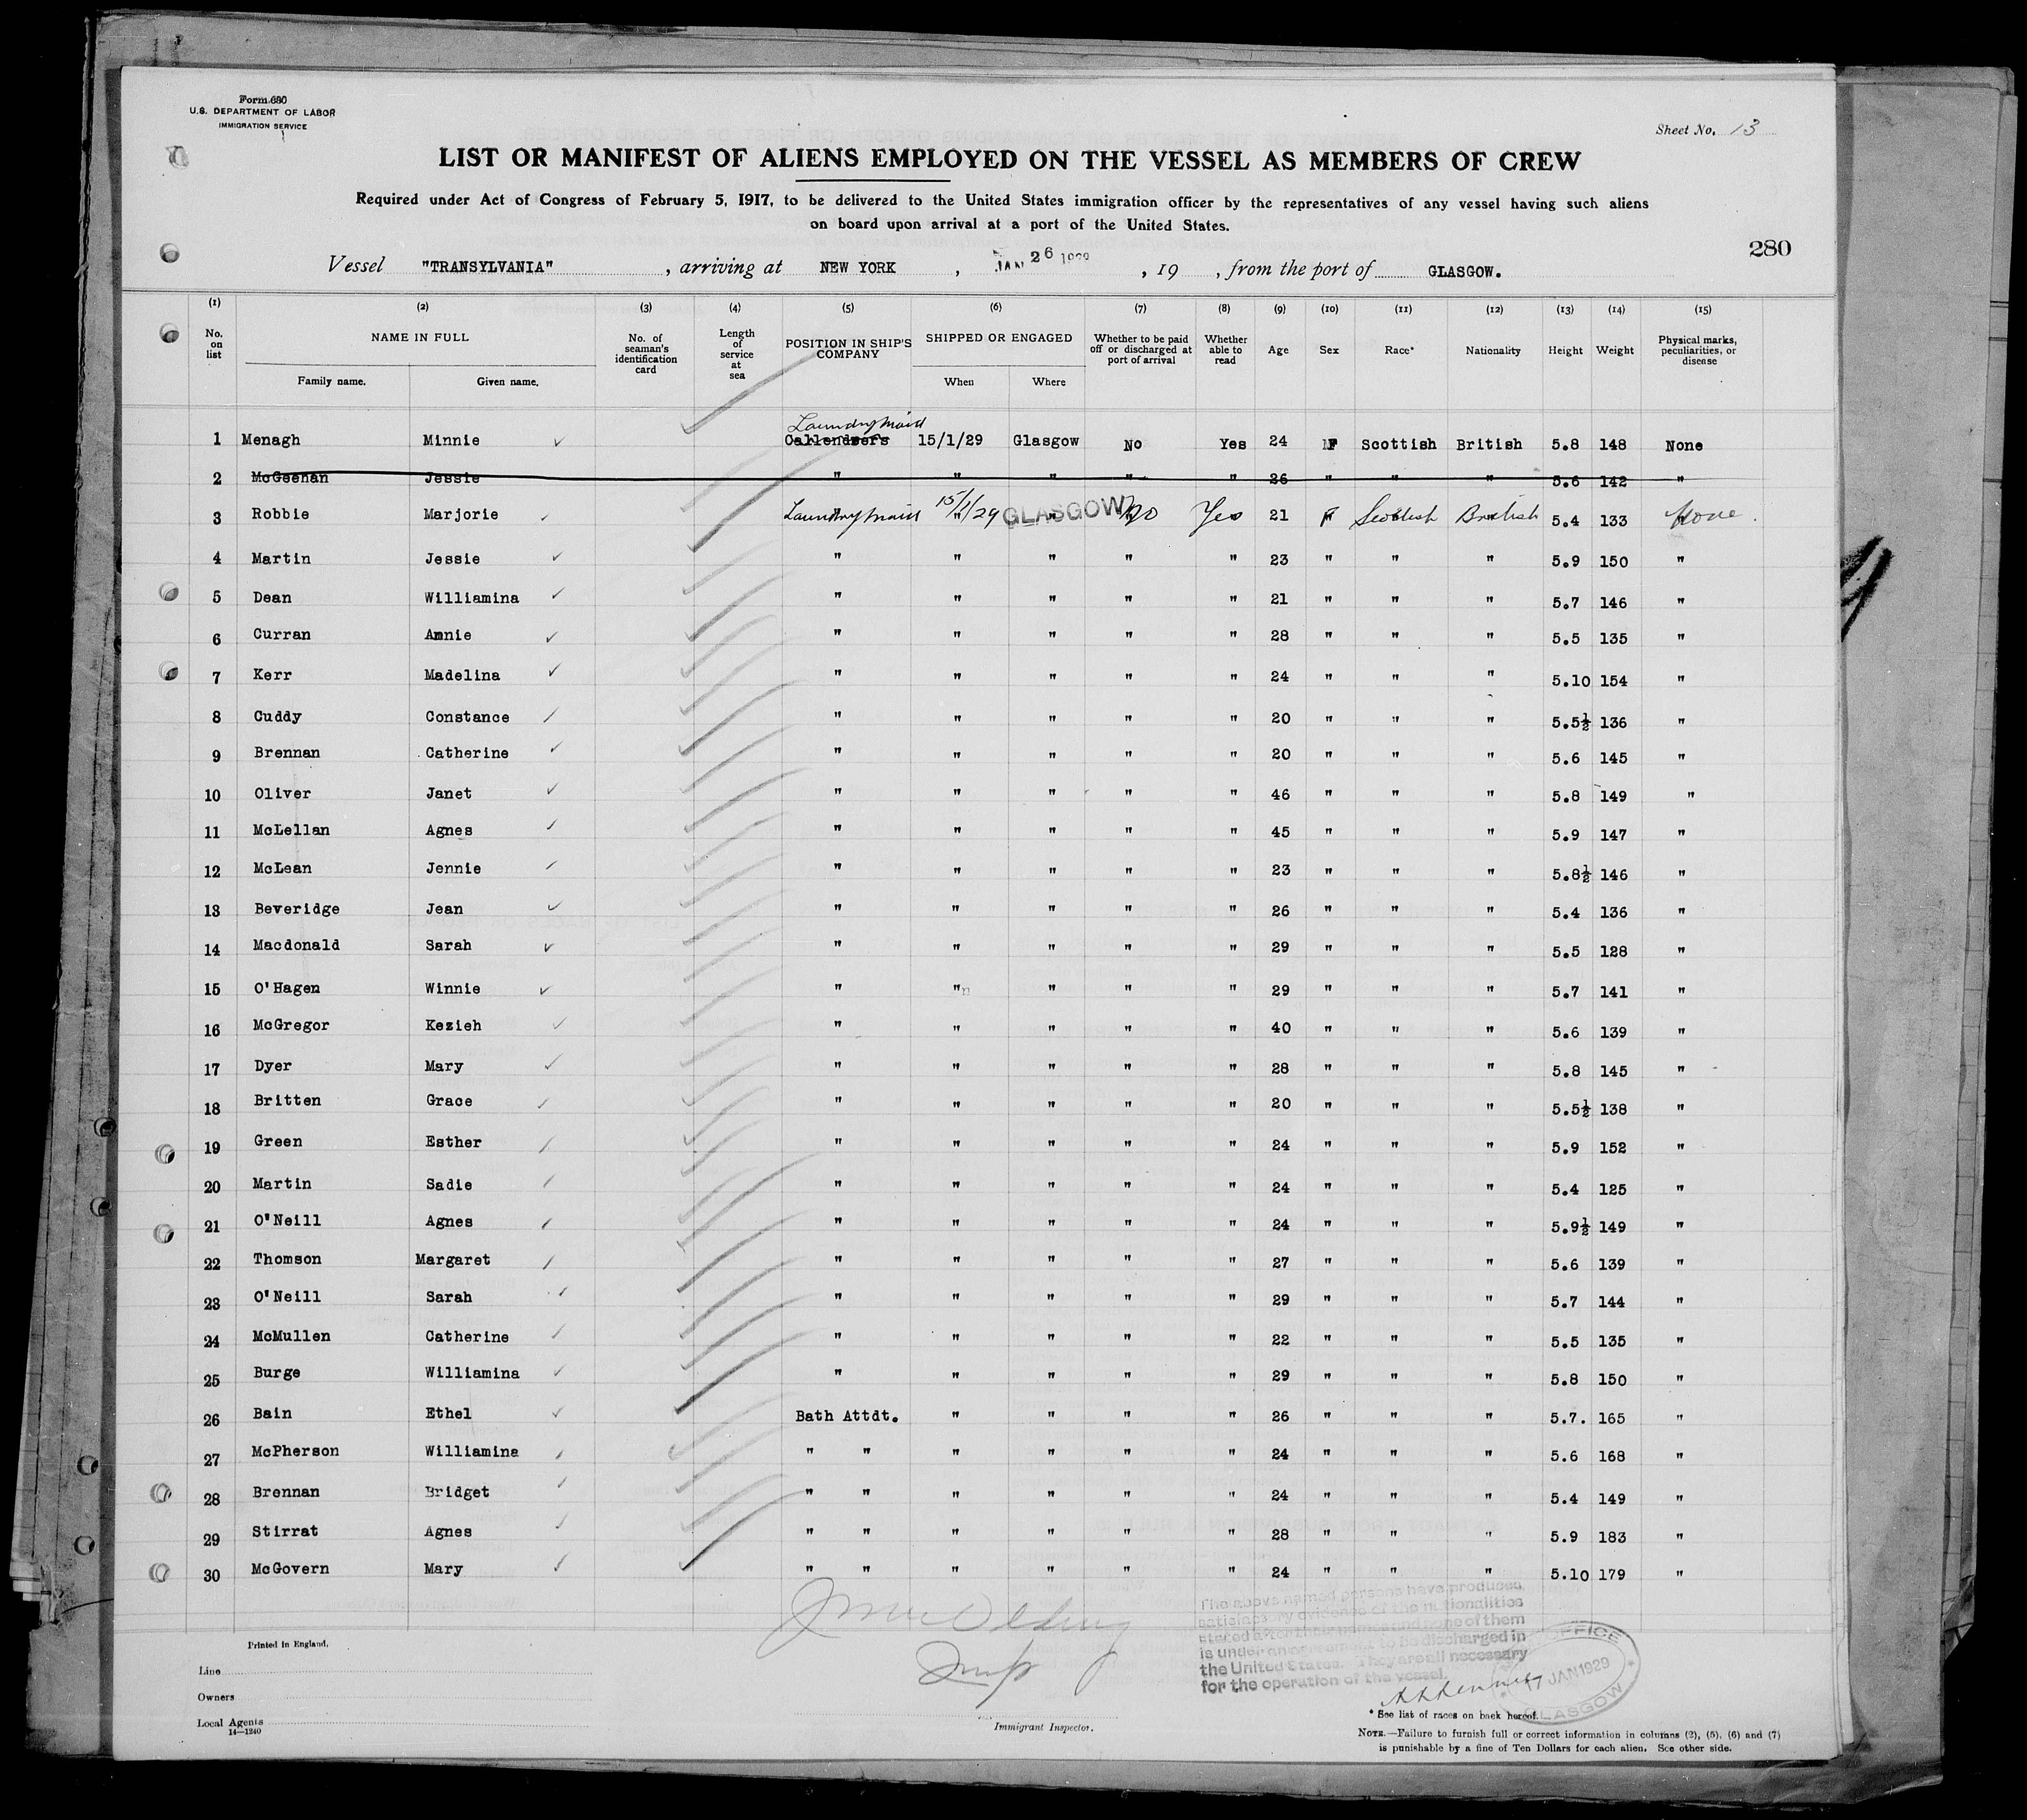 Form 680
U.S. DEPARTMENT OF LABOR
IMMIGRATION SERVICE
Sheet No. 13
LIST OR MANIFEST OF ALIENS EMPLOYED ON THE VESSEL AS MEMBERS OF CREW
Required under Act of Congress of February 5, 1917, to be delivered to the United States immigration officer by the representatives of any vessel having such aliens
on board upon arrival at a port of the United States.
280
Vessel "TRANSYLVANIA" , arriving at NEW YORK , JAN 26 1929 , 19 , from the port of GLASGOW.
(1) (2) (3) (4) (5) (6) (7) (8) (9) (10) (11) (12) (13) (14) (15)
No. on list NAME IN FULL No. of seaman's identification card Length of service at sea POSITION IN SHIP'S COMPANY SHIPPED OR ENGAGED Whether to be paid off or discharged at port of arrival Whether able to read Age Sex Race* Nationality Height Weight Physical marks, peculiarities, or disease
Family name. Given name. When Where
Laundrymaid
1 Menagh Minnie ✓ Callenders 15/1/29 Glasgow No Yes 24 F Scottish British 5.8 148 None
2 McGeehan Jessie " " " " " 26 " " " 5.6 142 "
3 Robbie Marjorie ✓ Laundrymaid 15/1/29 GLASGOW No Yes 21 F Scottish British 5.4 133 None.
4 Martin Jessie ✓ " " " " " 23 " " " 5.9 150 "
5 Dean Williamina ✓ " " " " " 21 " " " 5.7 146 "
6 Curran Annie ✓ " " " " " 28 " " " 5.5 135 "
7 Kerr Madelina ✓ " " " " " 24 " " " 5.10 154 "
8 Cuddy Constance ✓ " " " " " 20 " " " 5.5½ 136 "
9 Brennan Catherine ✓ " " " " " 20 " " " 5.6 145 "
10 Oliver Janet ✓ " " " " " 46 " " " 5.8 149 "
11 McLellan Agnes ✓ " " " " " 45 " " " 5.9 147 "
12 McLean Jennie ✓ " " " " " 23 " " " 5.8½ 146 "
13 Beveridge Jean ✓ " " " " " 26 " " " 5.4 136 "
14 Macdonald Sarah ✓ " " " " " 29 " " " 5.5 128 "
15 O'Hagen Winnie ✓ " " " " " 29 " " " 5.7 141 "
16 McGregor Kezieh ✓ " " " " " 40 " " " 5.6 139 "
17 Dyer Mary ✓ " " " " " 28 " " " 5.8 145 "
18 Britten Grace ✓ " " " " " 20 " " " 5.5½ 138 "
19 Green Esther ✓ " " " " " 24 " " " 5.9 152 "
20 Martin Sadie ✓ " " " " " 24 " " " 5.4 125 "
21 O'Neill Agnes ✓ " " " " " 24 " " " 5.9½ 149 "
22 Thomson Margaret ✓ " " " " " 27 " " " 5.6 139 "
23 O'Neill Sarah ✓ " " " " " 29 " " " 5.7 144 "
24 McMullen Catherine ✓ " " " " " 22 " " " 5.5 135 "
25 Burge Williamina ✓ " " " " " 29 " " " 5.8 150 "
26 Bain Ethel ✓ Bath Attdt. " " " " 26 " " " 5.7. 165 "
27 McPherson Williamina ✓ " " " " " " 24 " " " 5.6 168 "
28 Brennan Bridget ✓ " " " " " " 24 " " " 5.4 149 "
29 Stirrat Agnes ✓ " " " " " " 28 " " " 5.9 183 "
30 McGovern Mary ✓ " " " " " " 24 " " " 5.10 179 "
The above named persons have produced
satisfactory evidence of the nationalities
stated after their names and none of them
is under an agreement to be discharged in
the United States. They are all necessary
for the operation of the vessel.
OFFICE
17 JAN 1929
GLASGOW
Printed in England.
Line
Owners
Local Agents
14—1240
Immigrant Inspector.
* See list of races on back hereof.
NOTE.—Failure to furnish full or correct information in columns (2), (5), (6) and (7)
is punishable by a fine of Ten Dollars for each alien. See other side.